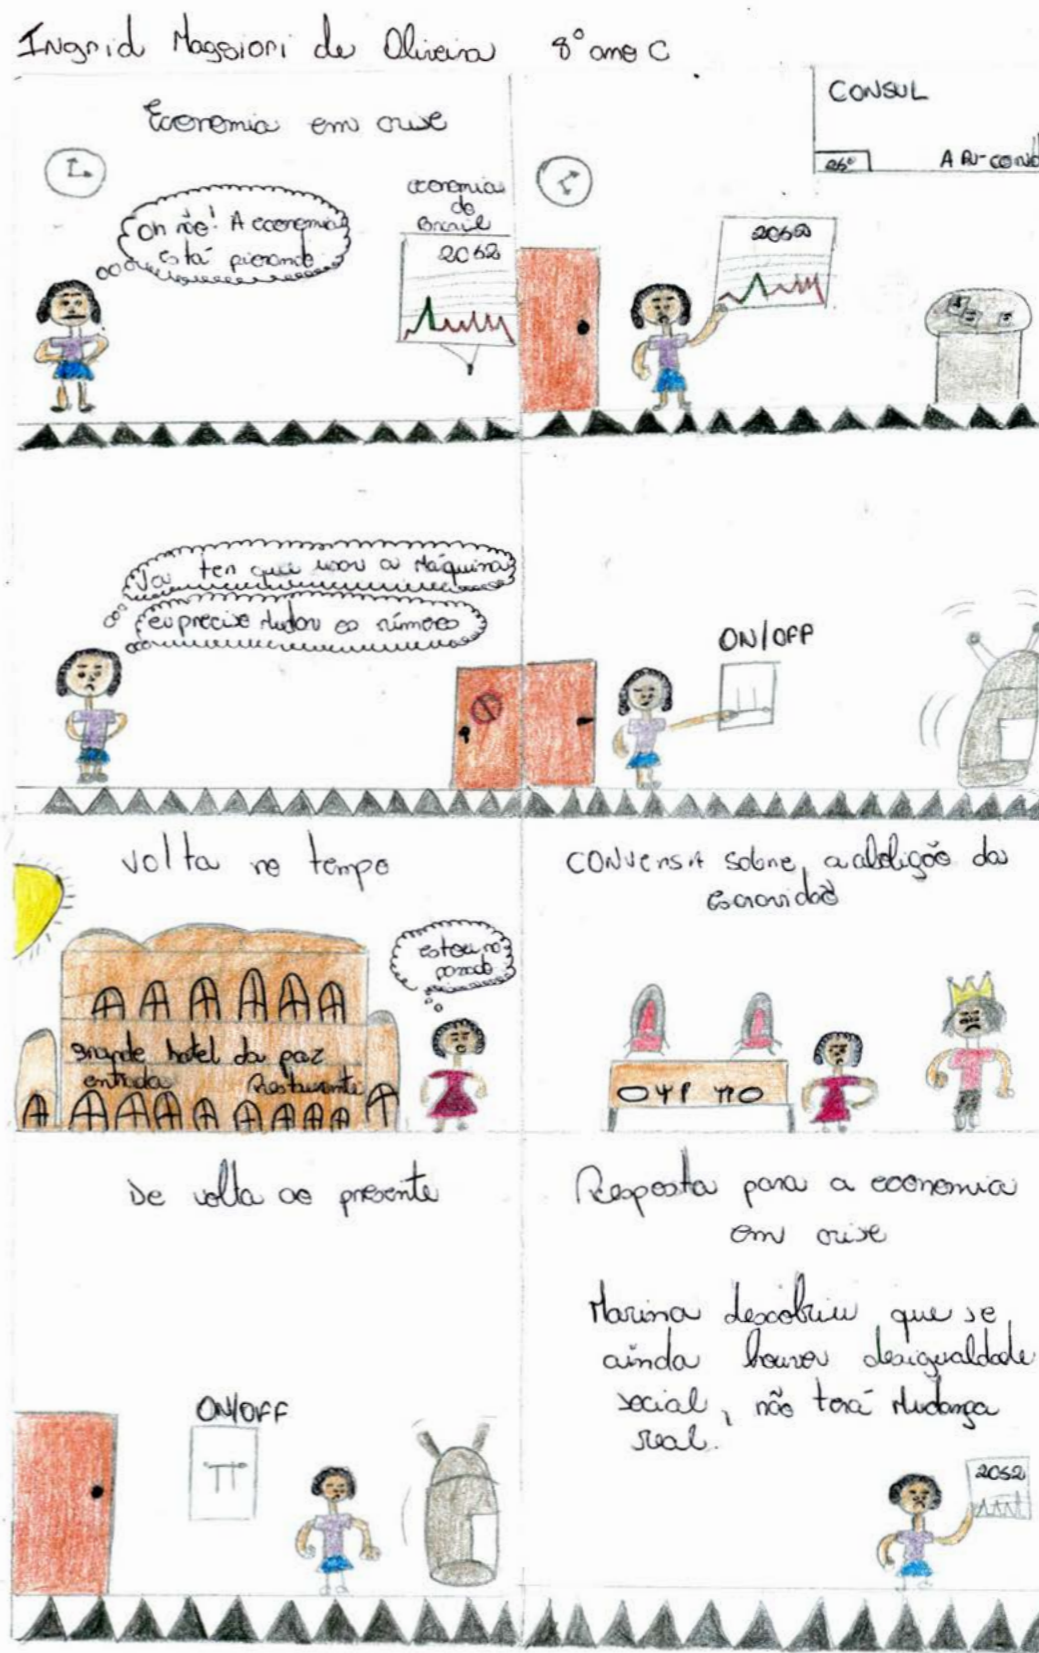 Ingrid Maggioni de Oliveira 8º ano C
Economia em crise
Oh não! A economia
está piorando
economia
do
Brasil
2052
CONSUL
26º
AR-COND
2052
Vou ter que usar a Máquina
eu preciso Mudar os números
ON/OFF
Volta no tempo
estou no
passado
grande hotel da paz
entrada Restaurante
CONVERSA sobre a abolição da
Escravidão
De volta ao presente
ON/OFF
Resposta para a economia
em crise
Marina descobriu que se
ainda houver desigualdade
social, não terá Mudança
real.
2052